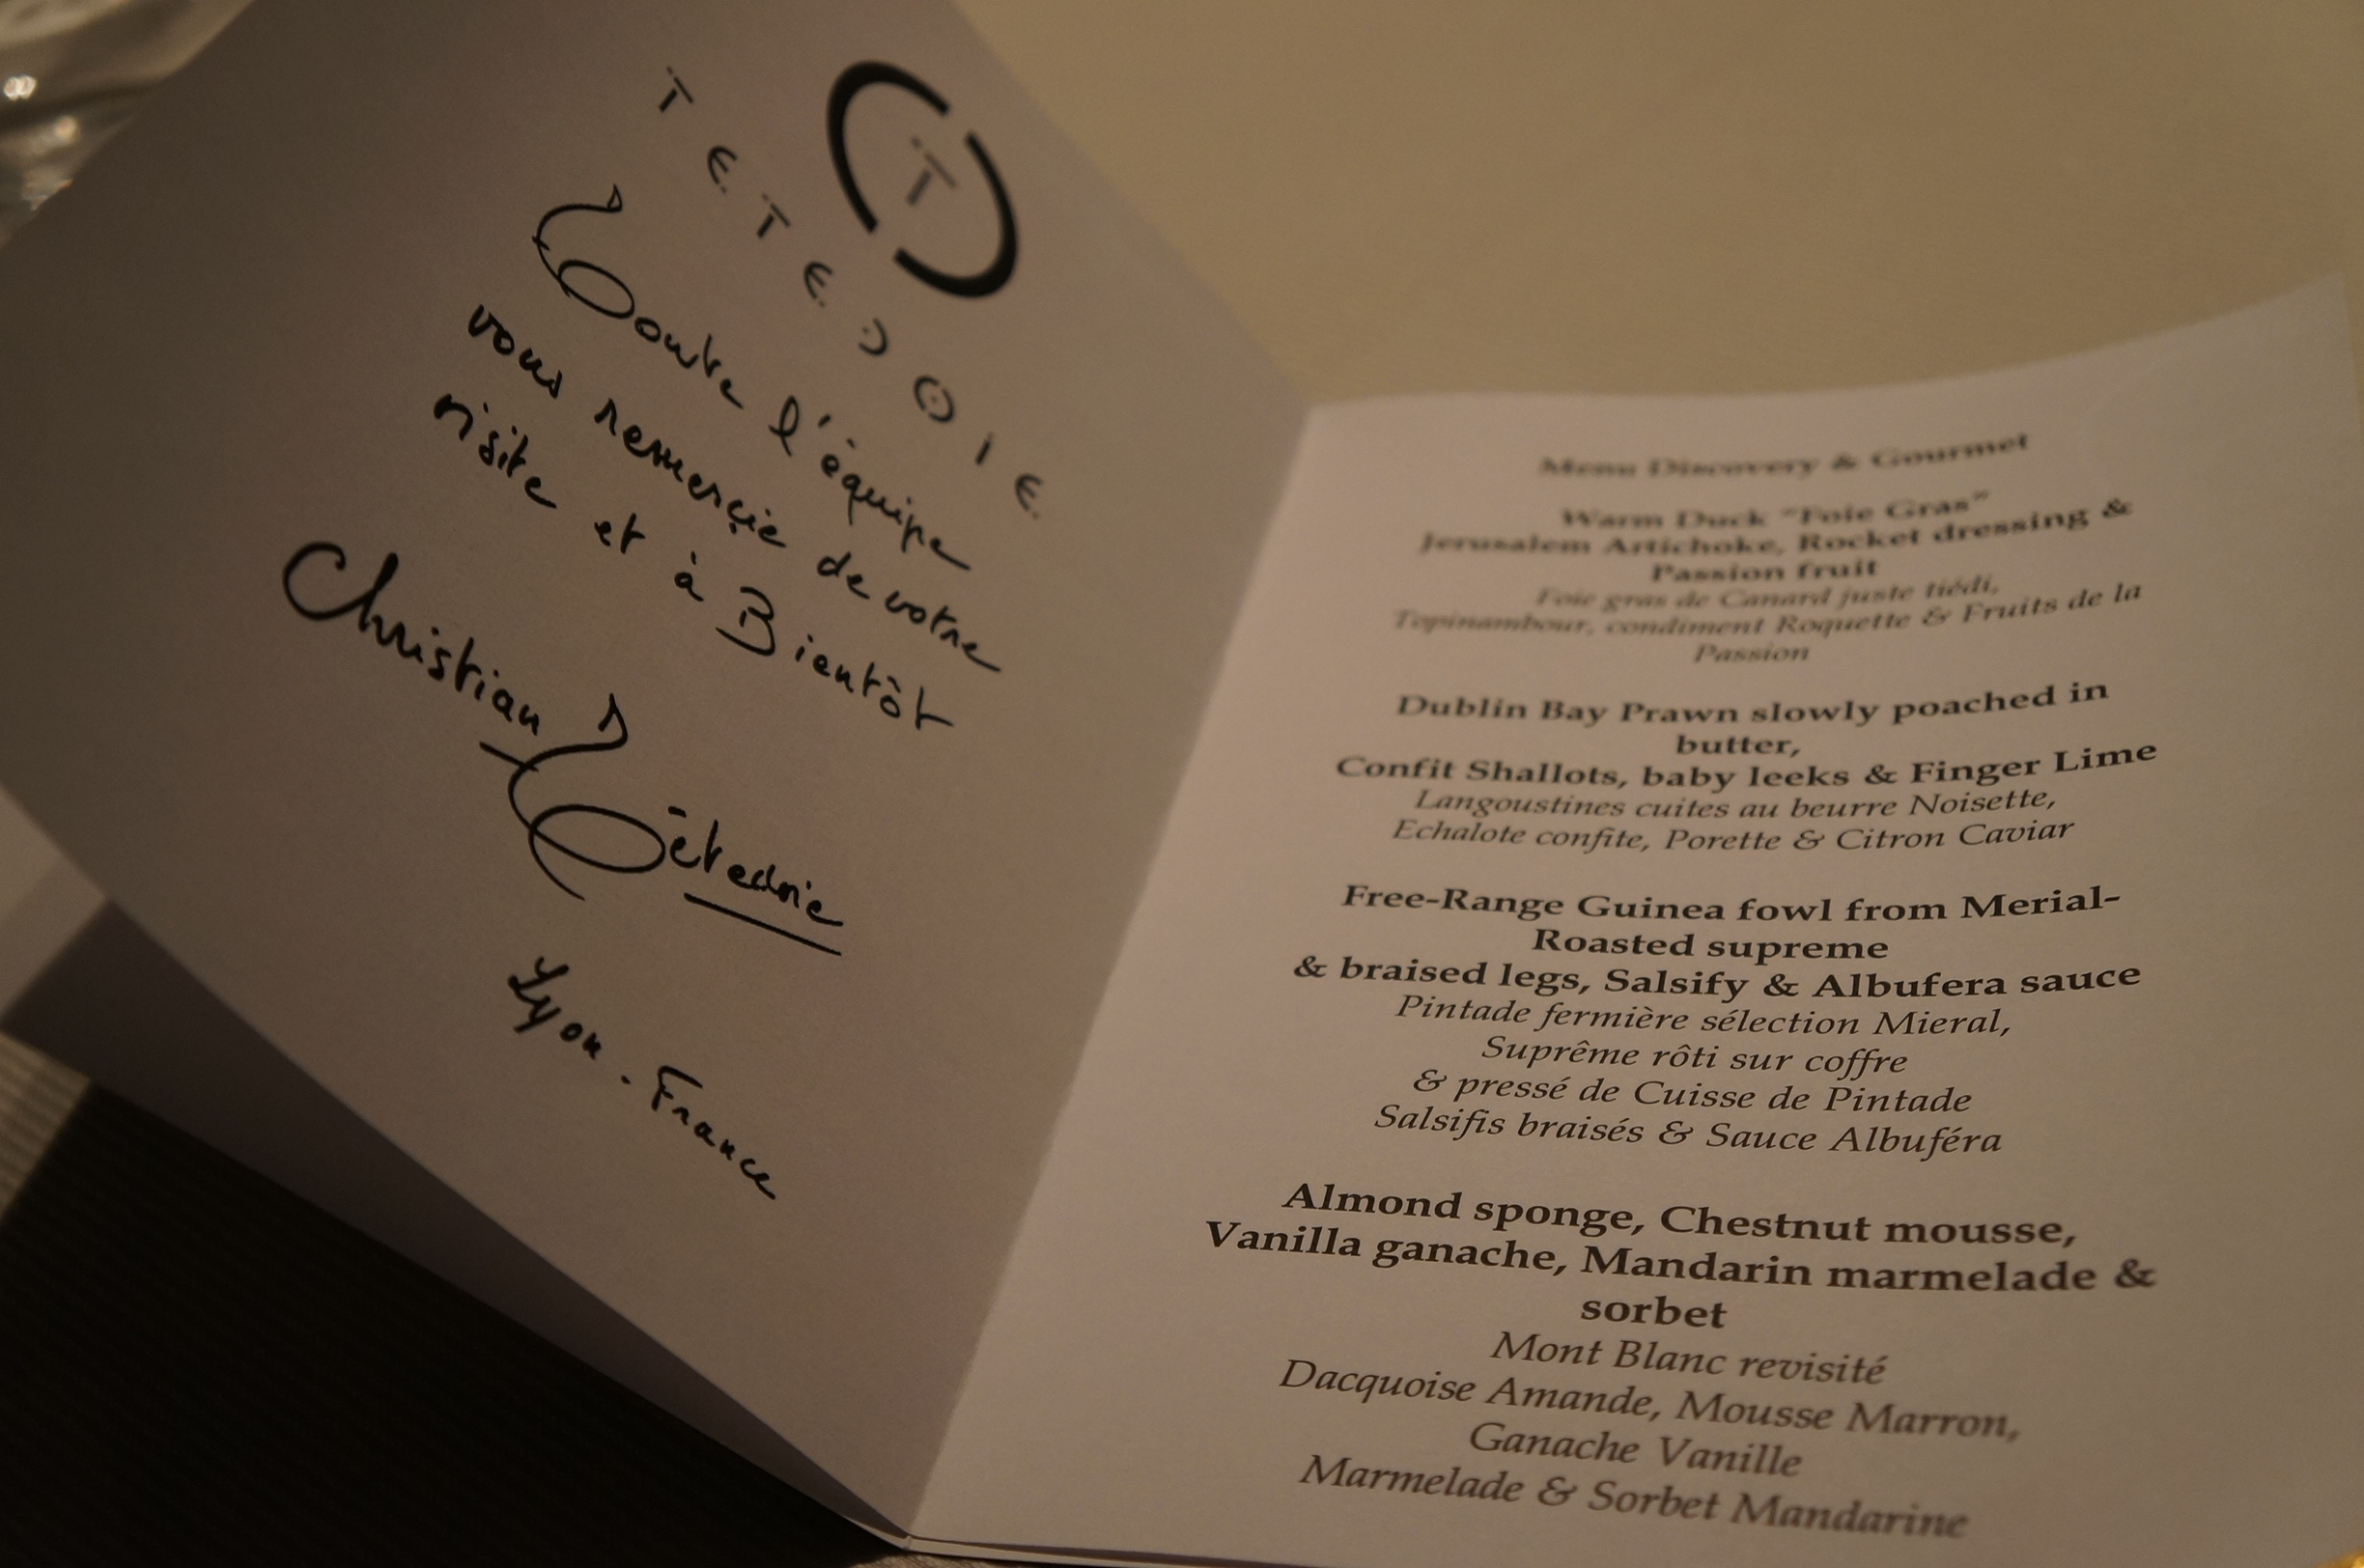 T
TETEDOIE
Toute l'équipe
vous remerçie de votre
visite et à Bientôt
Christian Têtedoie
Lyon . France
Menu Discovery & Gourmet
Warm Duck "Foie Gras"
Jerusalem Artichoke, Rocket dressing &
Passion fruit
Foie gras de Canard juste tiédi,
Topinambour, condiment Roquette & Fruits de la
Passion
Dublin Bay Prawn slowly poached in
butter,
Confit Shallots, baby leeks & Finger Lime
Langoustines cuites au beurre Noisette,
Echalote confite, Porette & Citron Caviar
Free-Range Guinea fowl from Merial-
Roasted supreme
& braised legs, Salsify & Albufera sauce
Pintade fermière sélection Mieral,
Suprême rôti sur coffre
& pressé de Cuisse de Pintade
Salsifis braisés & Sauce Albuféra
Almond sponge, Chestnut mousse,
Vanilla ganache, Mandarin marmelade &
sorbet
Mont Blanc revisité
Dacquoise Amande, Mousse Marron,
Ganache Vanille
Marmelade & Sorbet Mandarine